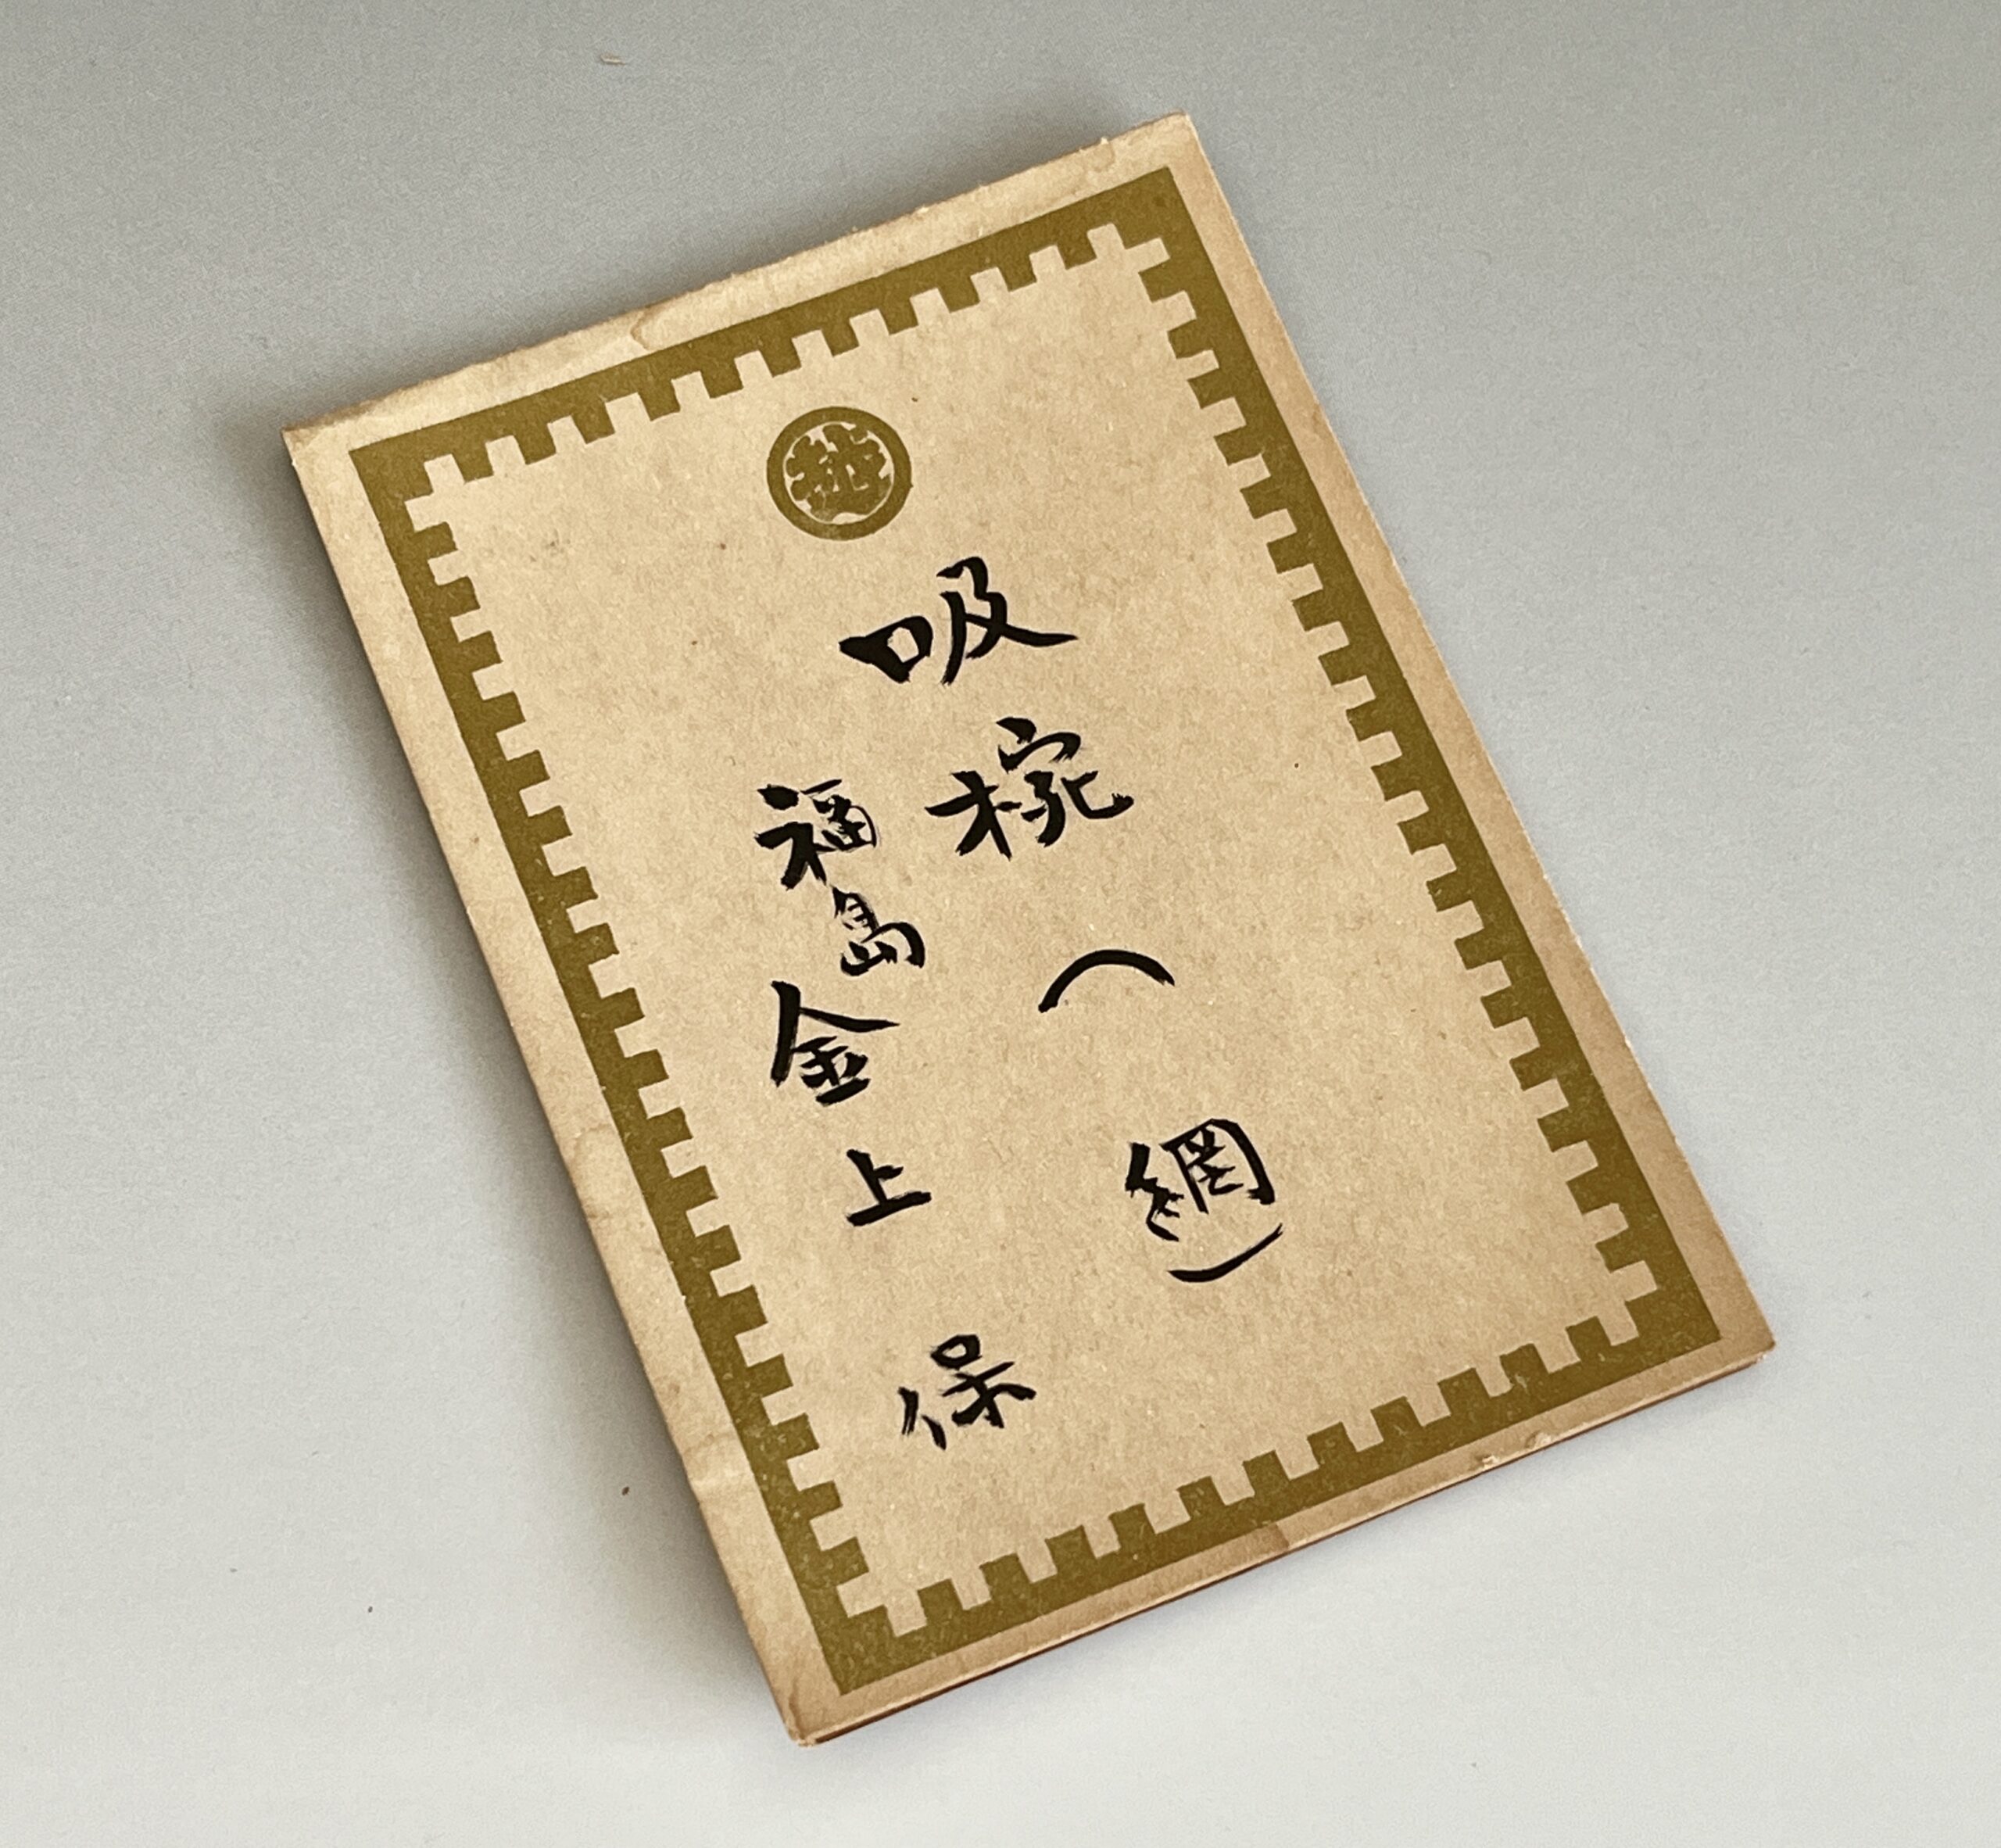 吸椀(網)
福島金上保